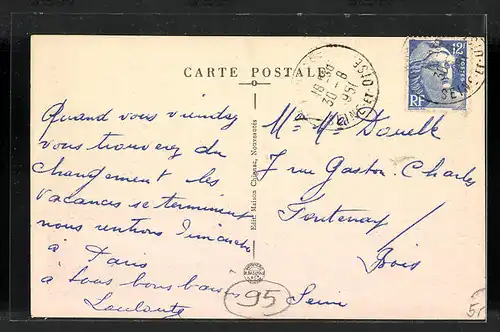 CARTE POSTALE
Quand vous viendrez
vous trouverez du
changement les
vacances se terminent
nous rentrons Dimanche
à Paris
à tous bons baisers
Edit. Maison Chinese, Nouveautés
18 - 30
30 - 8
1951
SEINE-ET-OISE
12F
POSTES
RF
SEINE-ET-
M. Mme Douelle
7 rue Gaston Charles
Fontenay /
Bois
Seine
95